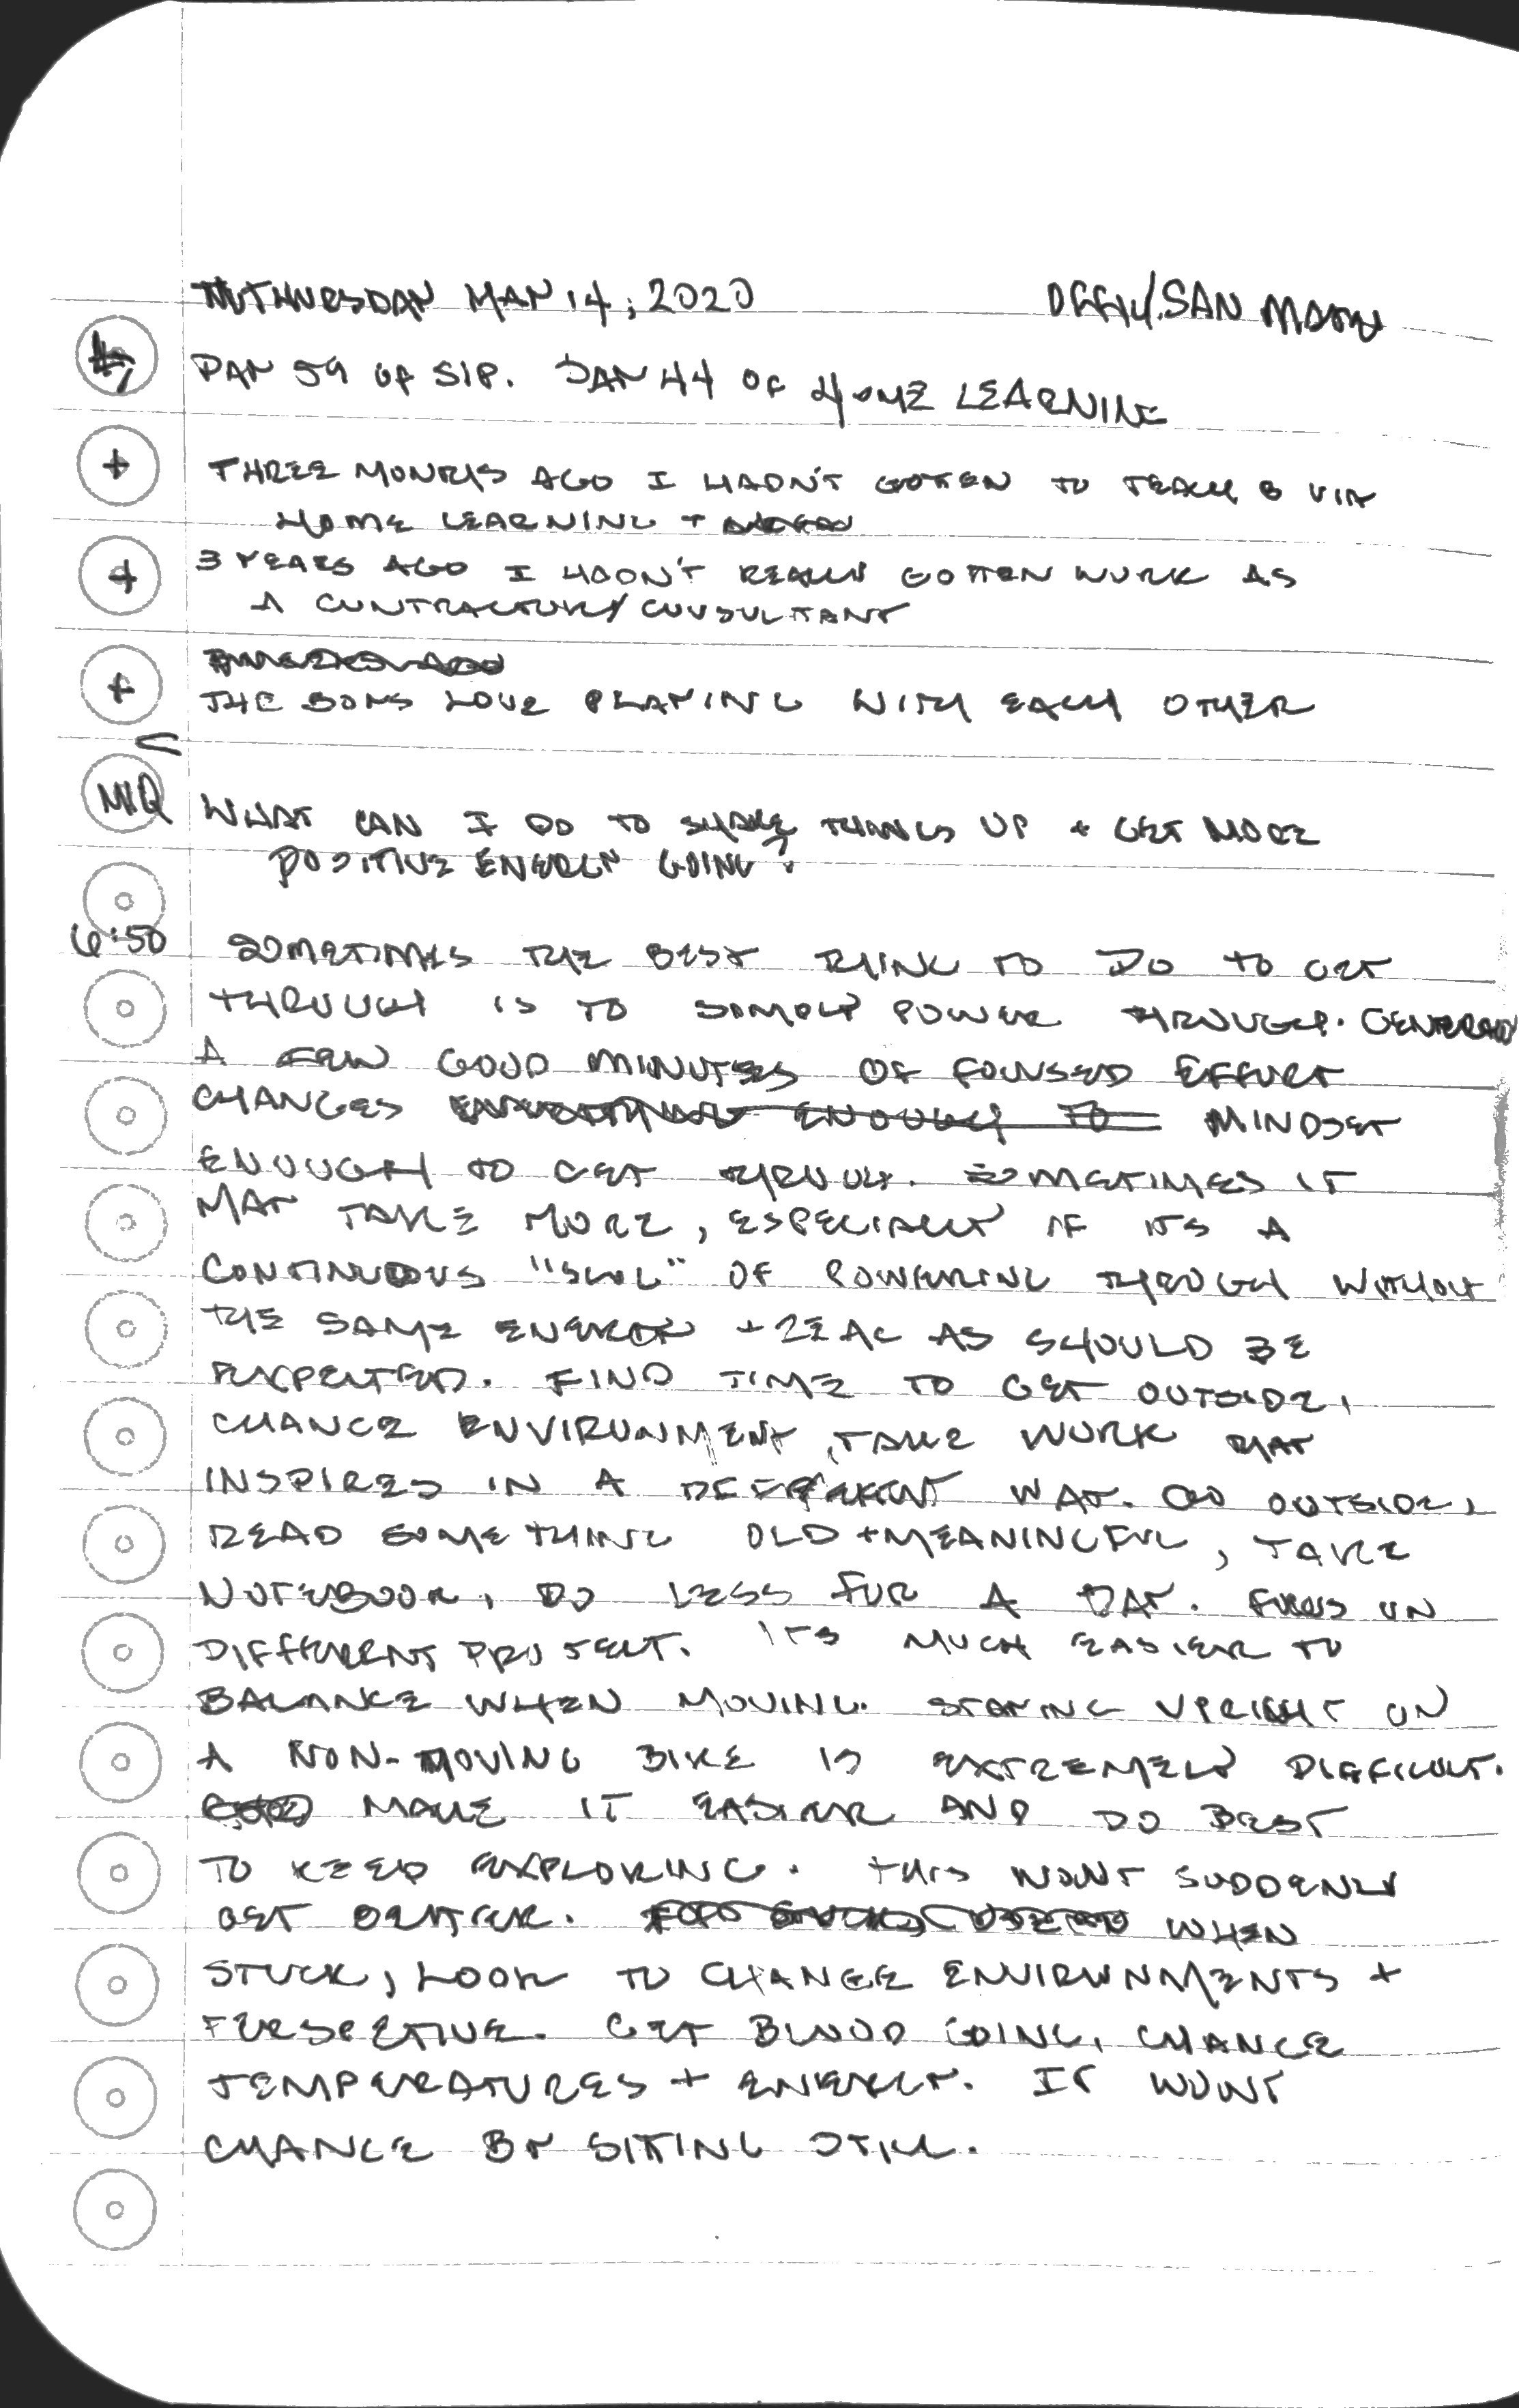 THURSDAY MAY 14, 2020 OFFICE/SAN MATEO
#1 DAY 59 OF SIP. DAY 44 OF HOME LEARNING
+ THREE MONTHS AGO I HADN'T GOTTEN TO TEACH B VIA
HOME LEARNING +
+ 3 YEARS AGO I HADN'T REALLY GOTTEN WORK AS
A CONTRACTOR/CONSULTANT
+ THE BOYS LOVE PLAYING WITH EACH OTHER
MIQ WHAT CAN I DO TO SHAKE THINGS UP + GET MORE
POSITIVE ENERGY GOING?
6:50 SOMETIMES THE BEST THING TO DO TO GET
THROUGH IS TO SIMPLY POWER THROUGH. GENERALLY
A FEW GOOD MINUTES OF FOCUSED EFFORT
CHANGES ENOUGH TO MINDSET
ENOUGH TO GET THROUGH. SOMETIMES IT
MAY TAKE MORE, ESPECIALLY IF ITS A
CONTINUOUS "SLOG" OF POWERING THROUGH WITHOUT
THE SAME ENERGY + ZEAL AS SHOULD BE
EXPECTED. FIND TIME TO GET OUTSIDE,
CHANGE ENVIRONMENT, TAKE WORK THAT
INSPIRES IN A DIFFERENT WAY. GO OUTSIDE,
READ SOMETHING OLD + MEANINGFUL, TAKE
NOTEBOOK, DO LESS FOR A DAY. FOCUS ON
DIFFERENT PROJECT. ITS MUCH EASIER TO
BALANCE WHEN MOVING. STAYING UPRIGHT ON
A NON-MOVING BIKE IS EXTREMELY DIFFICULT.
MAKE IT EASIER AND DO BEST
TO KEEP EXPLORING. THIS WONT SUDDENLY
GET BETTER. WHEN
STUCK, LOOK TO CHANGE ENVIRONMENTS +
PERSPECTIVE. GET BLOOD GOING, CHANGE
TEMPERATURES + ENERGY. IT WONT
CHANGE BY SITTING STILL.